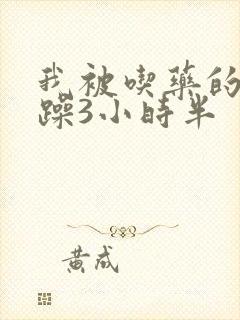 我被喫藥的
躁3小時半
黃成